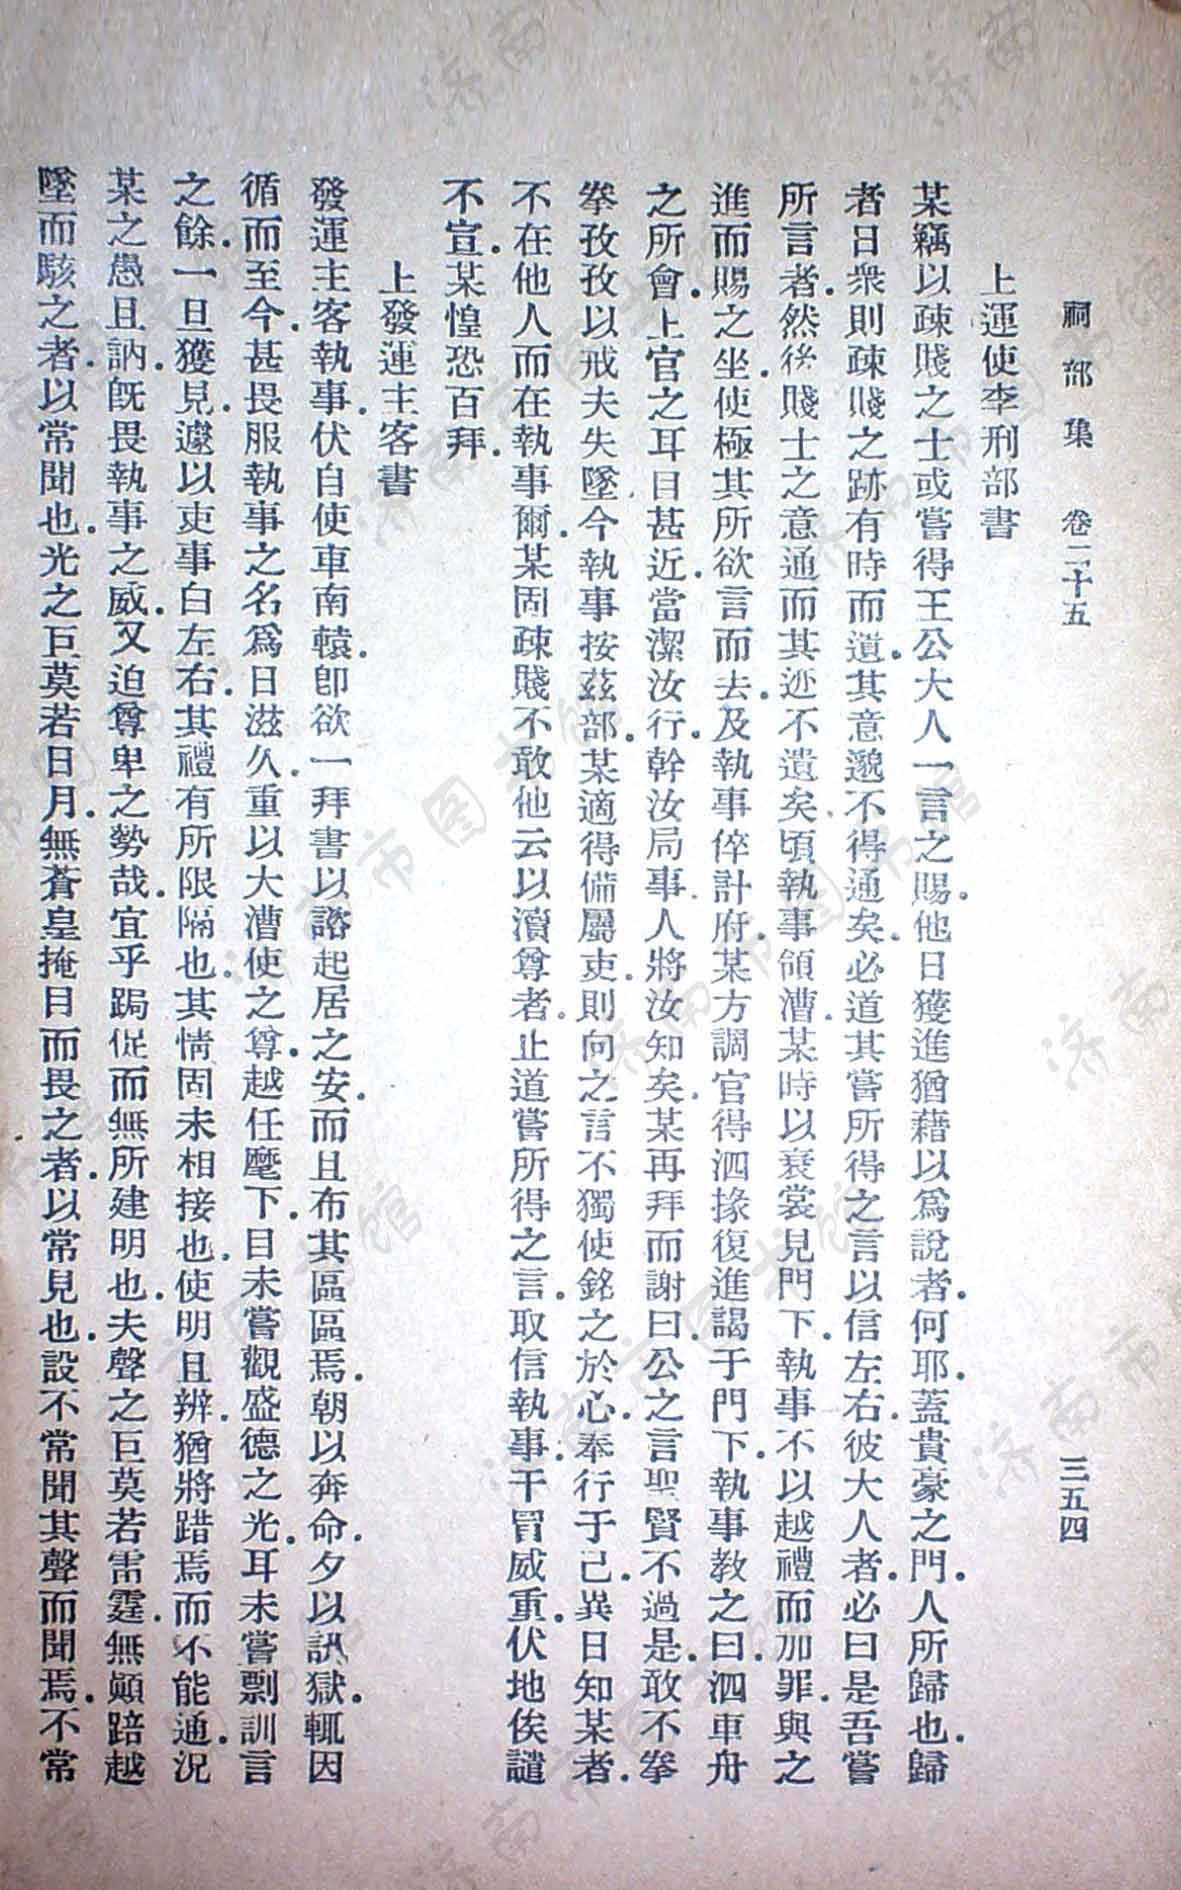 祠部集　卷二十五　三五四
上運使李刑部書
某竊以疎賤之士或嘗得王公大人一言之賜．他日獲進猶藉以爲說者．何耶．蓋貴豪之門．人所歸也．歸
者日衆則疎賤之跡有時而遺．其意邈不得通矣．必道其嘗所得之言以信左右．彼大人者．必曰是吾嘗
所言者．然後賤士之意通而其迹不遺矣．頃執事領漕．某時以衰裳見門下．執事不以越禮而加罪．與之
進而賜之坐．使極其所欲言而去．及執事倅計府．某方調官得泗掾復進謁于門下．執事教之曰．泗車舟
之所會．上官之耳目甚近．當潔汝行．幹汝局事人將汝知矣．某再拜而謝曰．公之言聖賢不過是．敢不拳
拳孜孜以戒夫失墜今執事按茲部．某適得備屬吏．則向之言不獨使銘之於心．奉行于己．異日知某者．
不在他人而在執事爾．某固疎賤不敢他云以瀆尊者．止道嘗所得之言．取信執事．干冒威重．伏地俟譴
不宣．某惶恐百拜．
上發運主客書
發運主客執事．伏自使車南轅．卽欲一拜書以諮起居之安．而且布其區區焉．朝以奔命．夕以訊獄．輒因
循而至今．甚畏服執事之名爲日滋久．重以大漕使之尊．越任麾下．目未嘗觀盛德之光．耳未嘗剽訓言
之餘．一旦獲見．遽以吏事白左右．其禮有所限隔也．其情固未相接也．使明且辨．猶將踖焉而不能通．況
某之愚且訥．旣畏執事之威．又迫尊卑之勢哉．宜乎跼促而無所建明也．夫聲之巨莫若雷霆．無顚踣越
墜而駭之者．以常聞也．光之巨莫若日月．無蒼皇掩目而畏之者．以常見也．設不常聞其聲而聞焉．不常